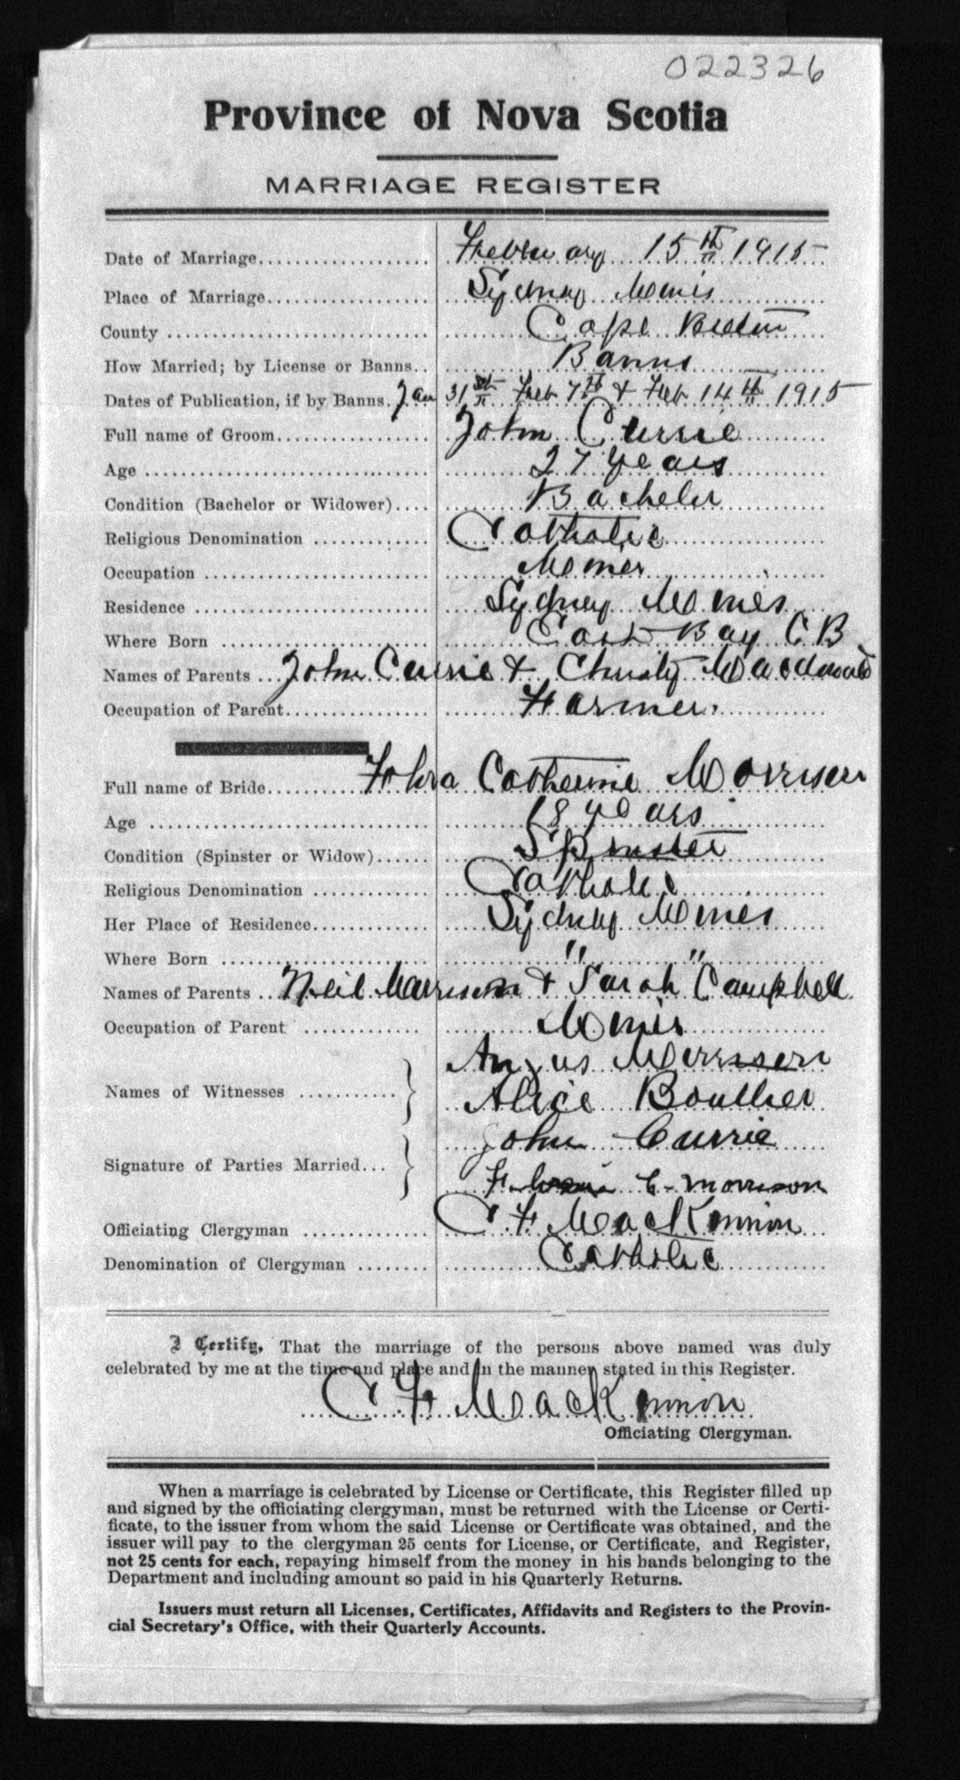 022326
Province of Nova Scotia
MARRIAGE REGISTER
Date of Marriage February 15th 1915
Place of Marriage Sydney Mines
County Cape Breton
How Married; by License or Banns Banns
Dates of Publication, if by Banns. Jan 31st Feb 7th & Feb 14th 1915
Full name of Groom John Currie
Age 27 years
Condition (Bachelor or Widower) Bachelor
Religious Denomination Catholic
Occupation Miner
Residence Sydney Mines
Where Born East Bay C B
Names of Parents John Currie & Christy MacDonald
Occupation of Parent Farmer
Full name of Bride Catherine Morrison
Age 18 years
Condition (Spinster or Widow) Spinster
Religious Denomination Catholic
Her Place of Residence Sydney Mines
Where Born " "
Names of Parents Neil Morrison & Sarah Campbell
Occupation of Parent Miner
Names of Witnesses Angus Morrison
Alice Bouthier
Signature of Parties Married John Currie
C. Morrison
Officiating Clergyman C F MacKinnon
Denomination of Clergyman Catholic
I Certify, That the marriage of the persons above named was duly
celebrated by me at the time and place and in the manner stated in this Register.
C F MacKinnon
Officiating Clergyman.
When a marriage is celebrated by License or Certificate, this Register filled up
and signed by the officiating clergyman, must be returned with the License or Certi-
ficate, to the issuer from whom the said License or Certificate was obtained, and the
issuer will pay to the clergyman 25 cents for License, or Certificate, and Register,
not 25 cents for each, repaying himself from the money in his hands belonging to the
Department and including amount so paid in his Quarterly Returns.
Issuers must return all Licenses, Certificates, Affidavits and Registers to the Provin-
cial Secretary's Office, with their Quarterly Accounts.